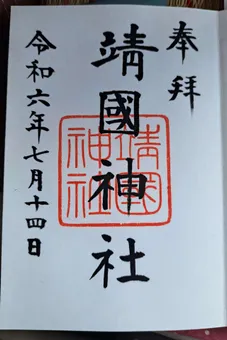 奉拝
靖國神社
靖國神社
令和六年七月十四日